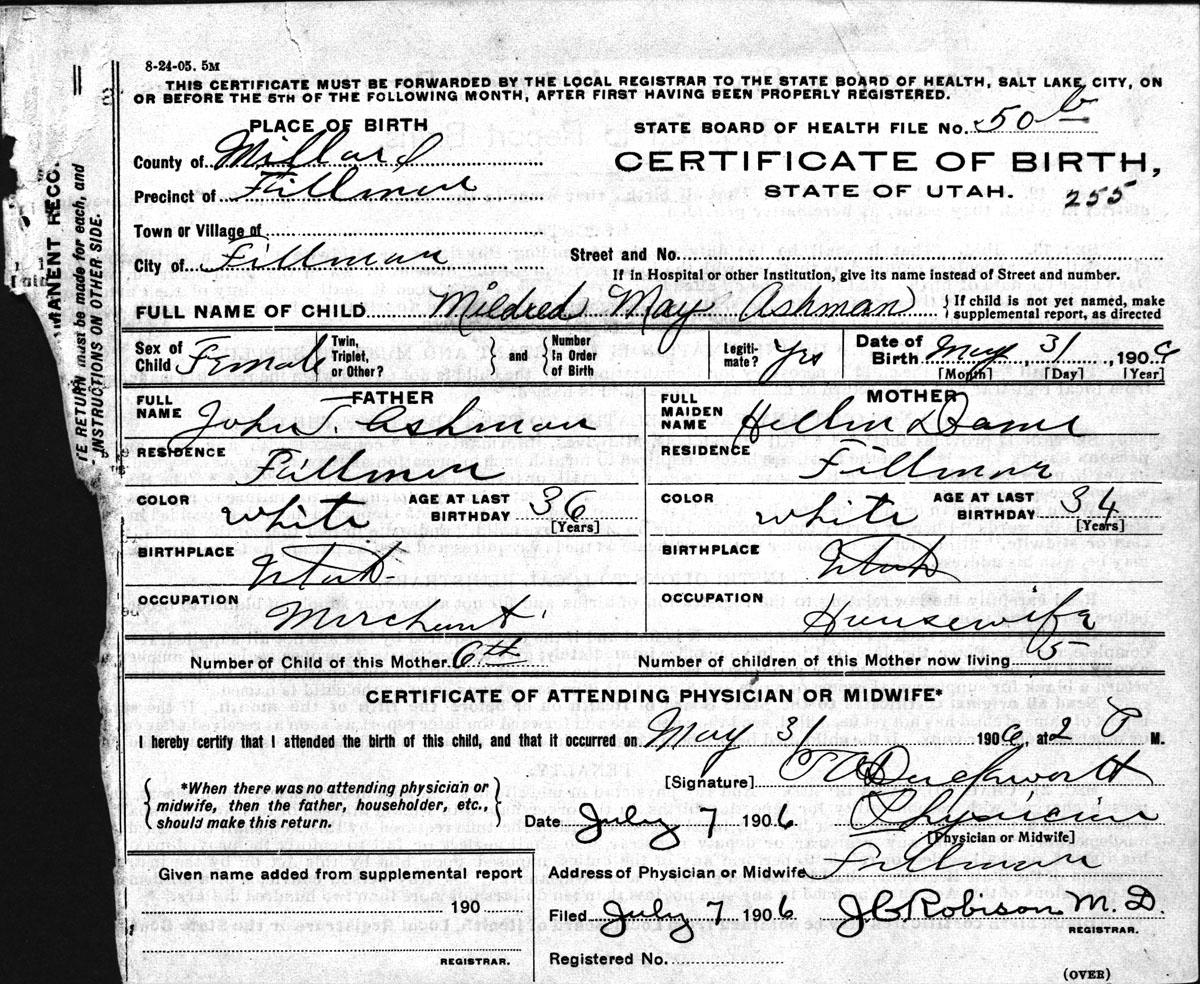 8-24-05. 5M
THIS CERTIFICATE MUST BE FORWARDED BY THE LOCAL REGISTRAR TO THE STATE BOARD OF HEALTH, SALT LAKE CITY, ON
OR BEFORE THE 5TH OF THE FOLLOWING MONTH, AFTER FIRST HAVING BEEN PROPERLY REGISTERED.
PLACE OF BIRTH
STATE BOARD OF HEALTH FILE No. 50 b
County of Millard
CERTIFICATE OF BIRTH,
Precinct of Fillmore
STATE OF UTAH. 255
Town or Village of
City of Fillmore
Street and No.
If in Hospital or other Institution, give its name instead of Street and number.
FULL NAME OF CHILD Mildred May Ashman { If child is not yet named, make supplemental report, as directed
Sex of Child Female Twin, Triplet, or Other? } and { Number In Order of Birth Legiti-mate? Yes Date of Birth May 31, 1906
[Month] [Day] [Year]
FATHER
MOTHER
FULL NAME John Ashman
FULL MAIDEN NAME Hellen Dame
RESIDENCE Fillmore
RESIDENCE Fillmore
COLOR White AGE AT LAST BIRTHDAY 36 [Years]
COLOR White AGE AT LAST BIRTHDAY 34 [Years]
BIRTHPLACE Utah
BIRTHPLACE Utah
OCCUPATION Merchant
OCCUPATION Housewife
Number of Child of this Mother 6th
Number of children of this Mother now living 5
CERTIFICATE OF ATTENDING PHYSICIAN OR MIDWIFE*
I hereby certify that I attended the birth of this child, and that it occurred on May 31 1906, at 2 P M.
{ *When there was no attending physician or midwife, then the father, householder, etc., should make this return. }
[Signature] Duckworth
Date July 7 1906 Physician
[Physician or Midwife]
Given name added from supplemental report
190
REGISTRAR.
Address of Physician or Midwife Fillmore
Filed July 7 1906 J C Robison M. D.
REGISTRAR.
Registered No.
(OVER)
MANENT RECO
TE RETURN must be made for each, and
INSTRUCTIONS ON OTHER SIDE.